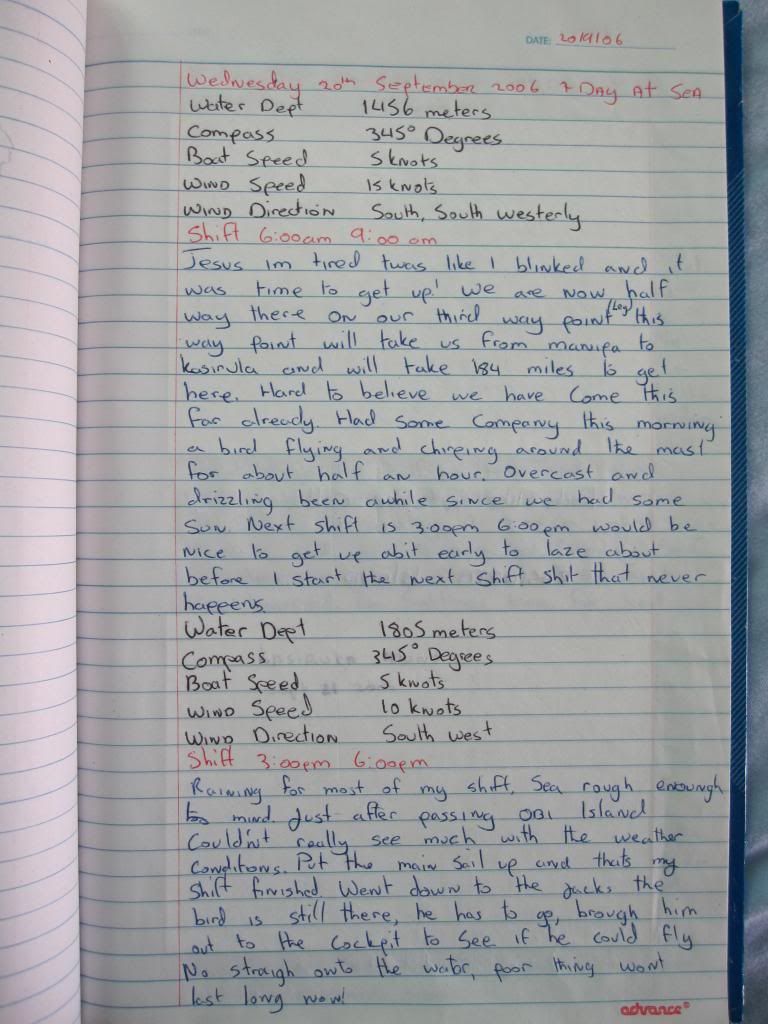 DATE: 20/9/06
Wednesday 20th September 2006 7 DAY At SEA
Water Dept 1456 meters
Compass 345° Degrees
Boat Speed 5 knots
WIND Speed 15 knots
WIND Direction South, South Westerly
Shift 6:00am 9:00 am
Jesus im tired twas like I blinked and it
was time to get up! We are now half
way there on our third way point (Leg) this
way point will take us from manipa to
kasirula and will take 184 miles to get
here. Hard to believe we have Come this
far already. Had some Company this morning
a bird flying and chirping around the mast
for about half an hour. Overcast and
drizzling been awhile since we had some
Sun. Next shift is 3:00pm 6:00pm would be
nice to get up abit early to laze about
before I start the next Shift shit that never
happens
Water Dept 1805 meters
Compass 345° Degrees
Boat Speed 5 knots
WIND Speed 10 knots
WIND Direction South west
Shift 3:00pm 6:00pm
Raining for most of my shift, Sea rough enoungh
to mind. Just after passing OBI Island
Couldn't really see much with the weather
Conditions. Put the main sail up and thats my
Shift finished Went down to the jacks the
bird is still there, he has to go, brough him
out to the Cockpit to See if he could fly
No straigh onto the water, poor thing wont
last long now!
advance®